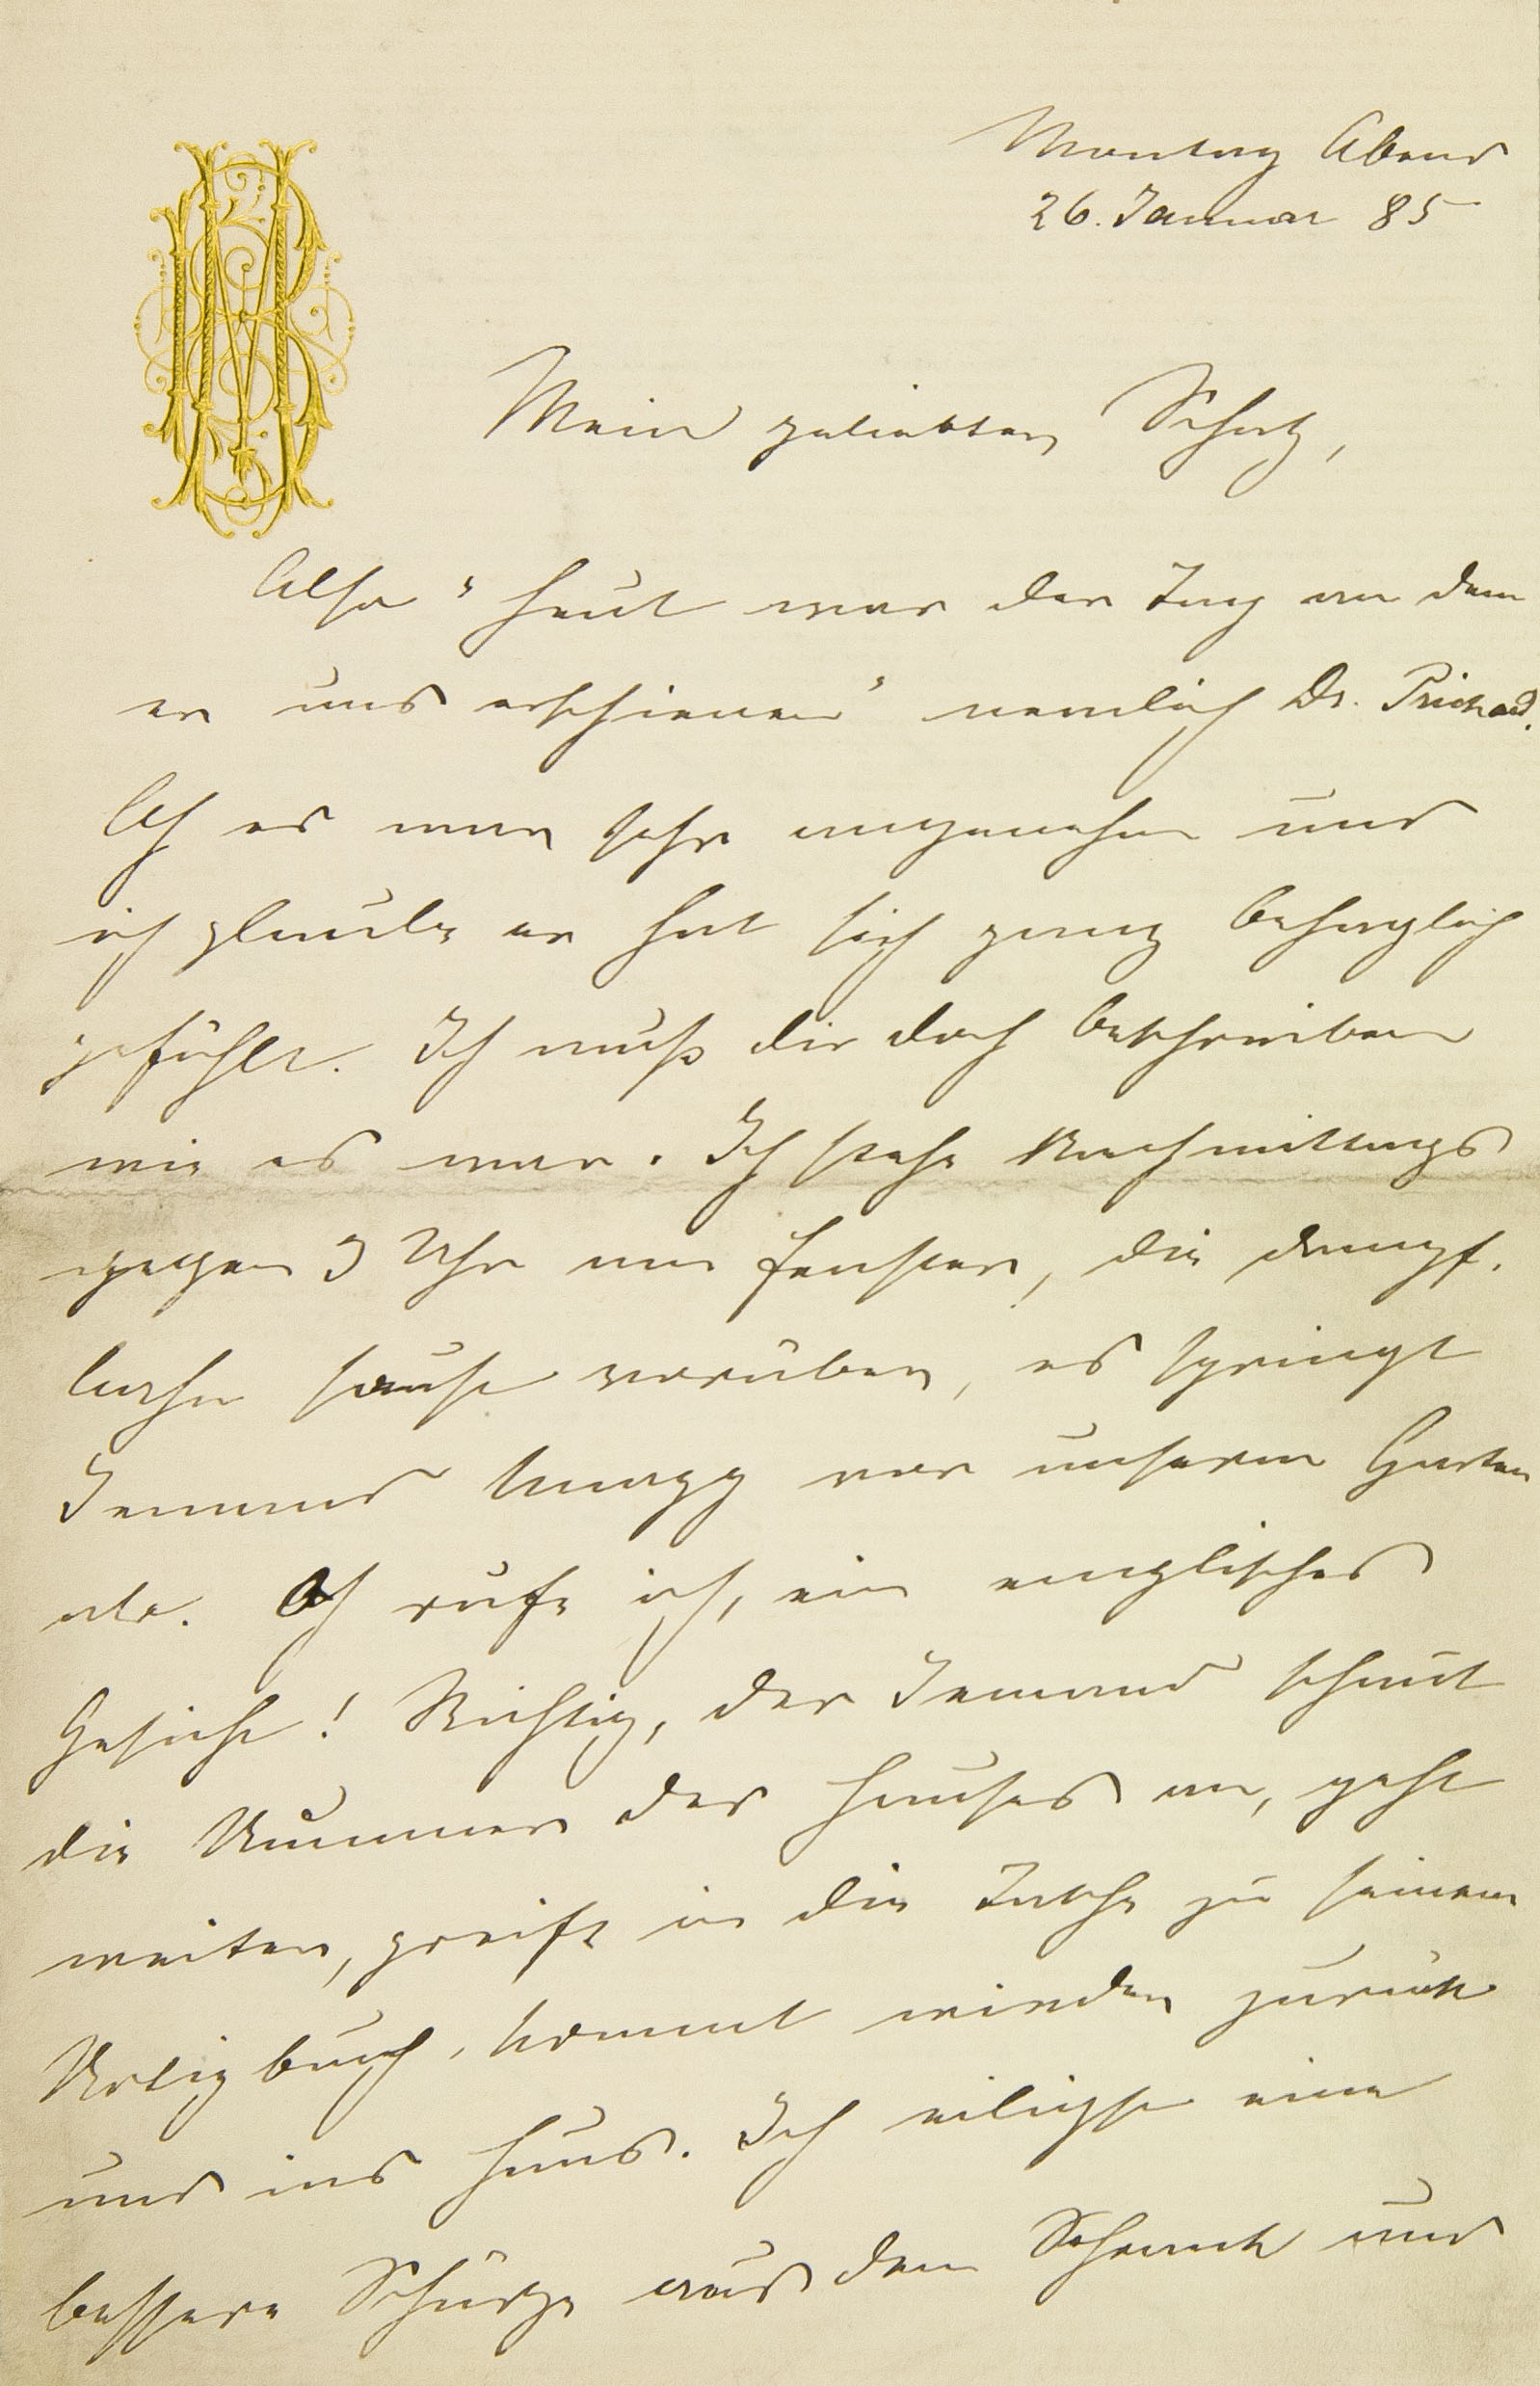 Montag Abend
26. Januar 85
Mein geliebter Schatz,
Also "heut war der Tag an dem
er uns erschienen" nemlich Dr. Prichard.
Ach es war sehr angenehm und
ich glaube er hat sich ganz behaglich
gefühlt. Ich muß dir doch beschreiben
wie es war. Ich stehe Nachmittags
gegen 3 Uhr am Fenster, die Dampf-
bahn saust vorüber, es springt
Jemand knapp vor unserm Garten
ab. Ach rufe ich, ein englisches
Gesicht! Richtig, der Jemand schaut
die Nummer des Hauses an, geht
weiter, greift in die Tasche zu seinem
Notizbuch, kommt wieder zurück
und ins Haus. Ich eiligst eine
bessere Schürze aus dem Schrank und